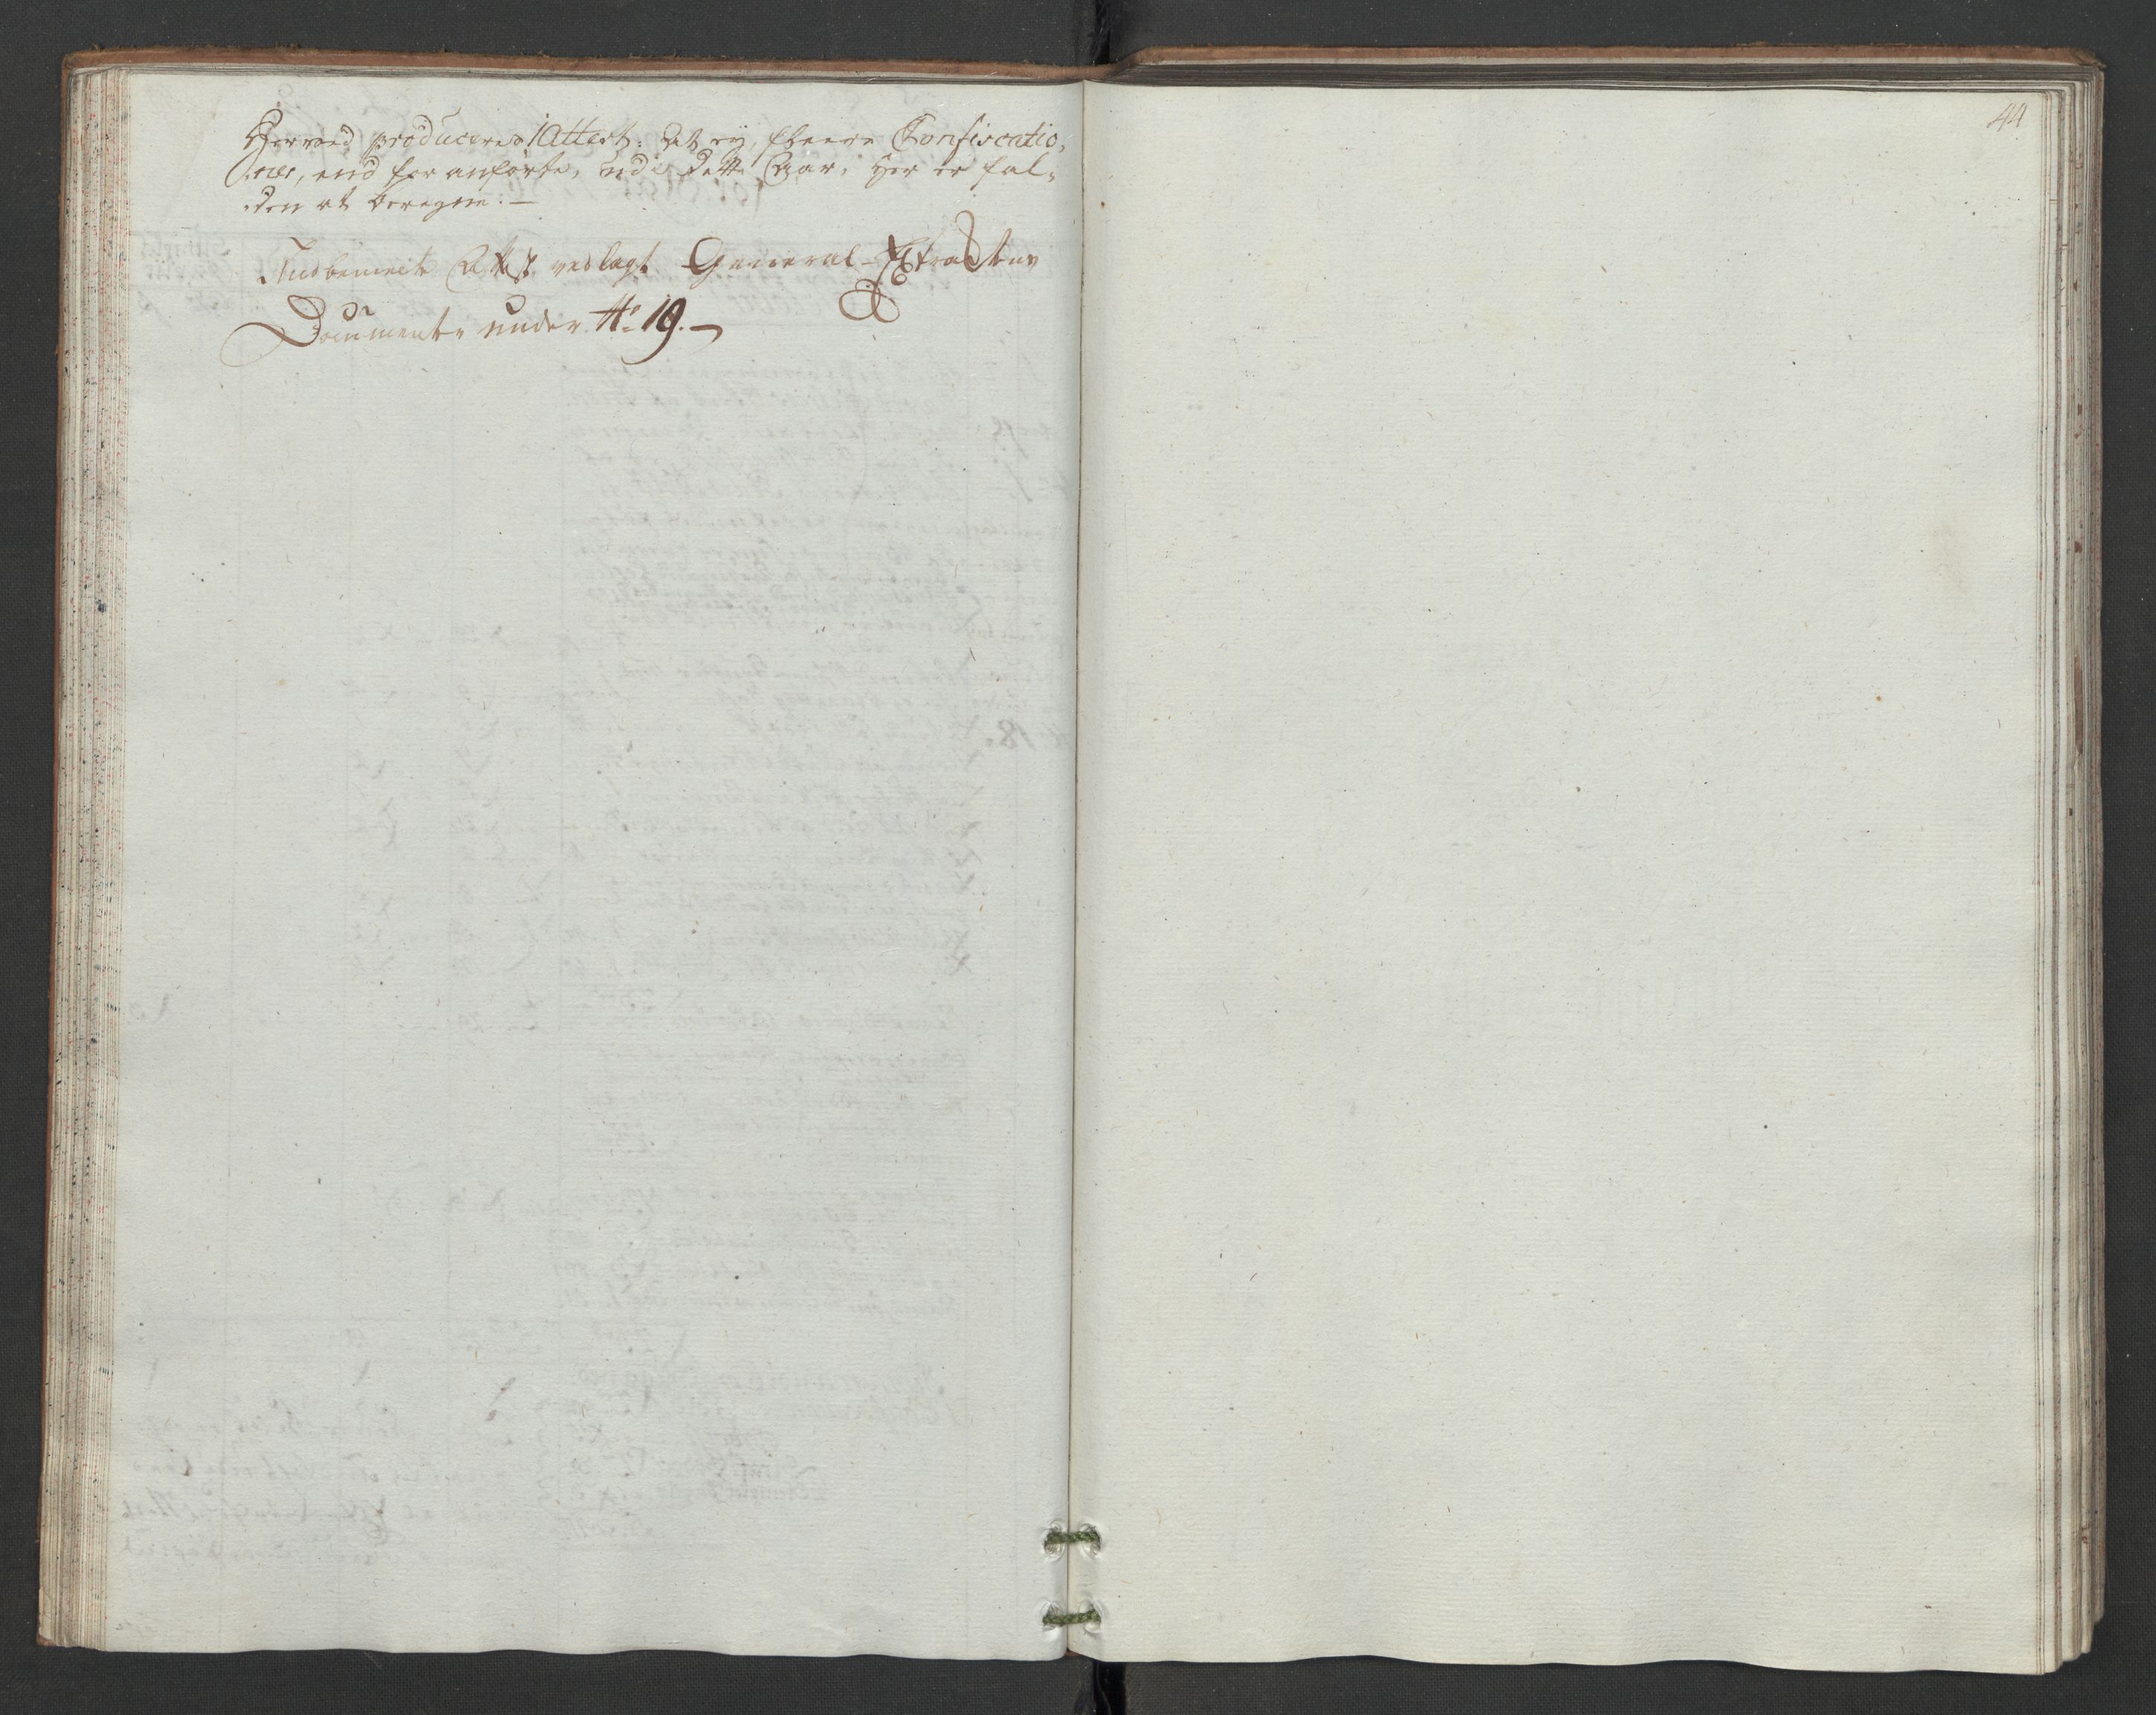 Herved producered Attest: At ej, fleere Confiscatio-
ner, end for anførte, udi dette Aar, her er fal-
den at beregne:—
Indbemeldte Attest vedlagt General-Extractens
Documenter under № 19.—
44